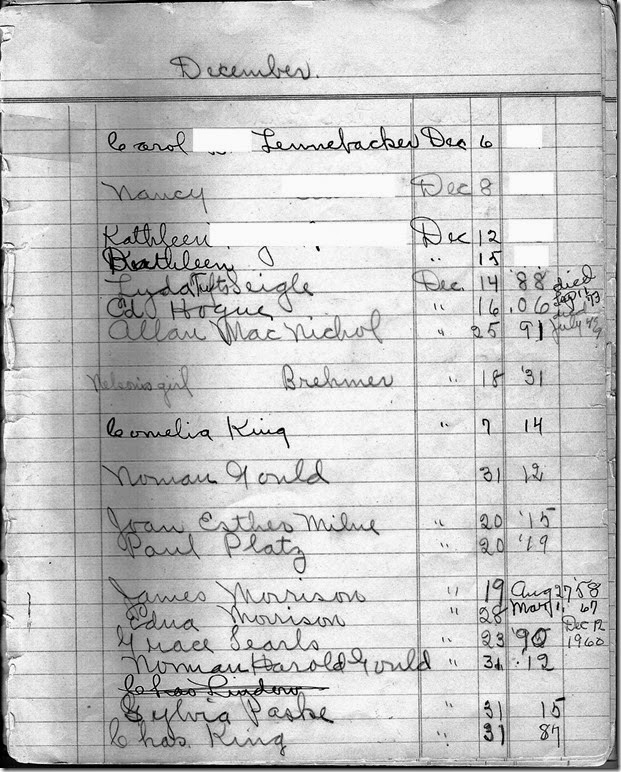 December.
Carol Lennebacker Dec 6
Nancy Dec 8
Kathleen Dec 12
Kathleen " 15
Lyda Tufts Seigle Dec. 14 '88 died
Ed Hogue " 16 .06
Allan MacNichol " 25 91 July
Nelson's girl Brehmer " 18 '31
Cornelia King " 7 14
Norman Gould 31 12
Joan Esther Milne " 20 '15
Paul Platz " 20 '19
James Morrison " 19 Aug 27 '58
Edna Morrison " 28 Mar 11, 67
Grace Searls " 23 '90 Dec 12 1960
Norman Harold Gould " 31 .12
Chas Lindow
Sylvia Paske " 31 15
Chas. King " 31 87